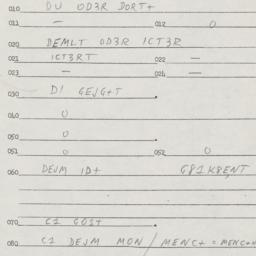 010 DU OD3R DORT+
011 — 012 O
020 DEMLT OD3R ICT3R
021 ICT3RT 022 —
023 — 024 —
030 DI GEJG+T
040 O
050 O
051 O 052 O
060 DEJM ID+ G81K8ENT
070 C1 GOST
080 C1 DEJM MON / MENC+ = MENC+N